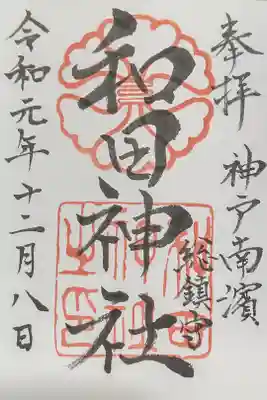 奉拝
神戸南濱
総鎮守
和田神社
令和元年十二月八日